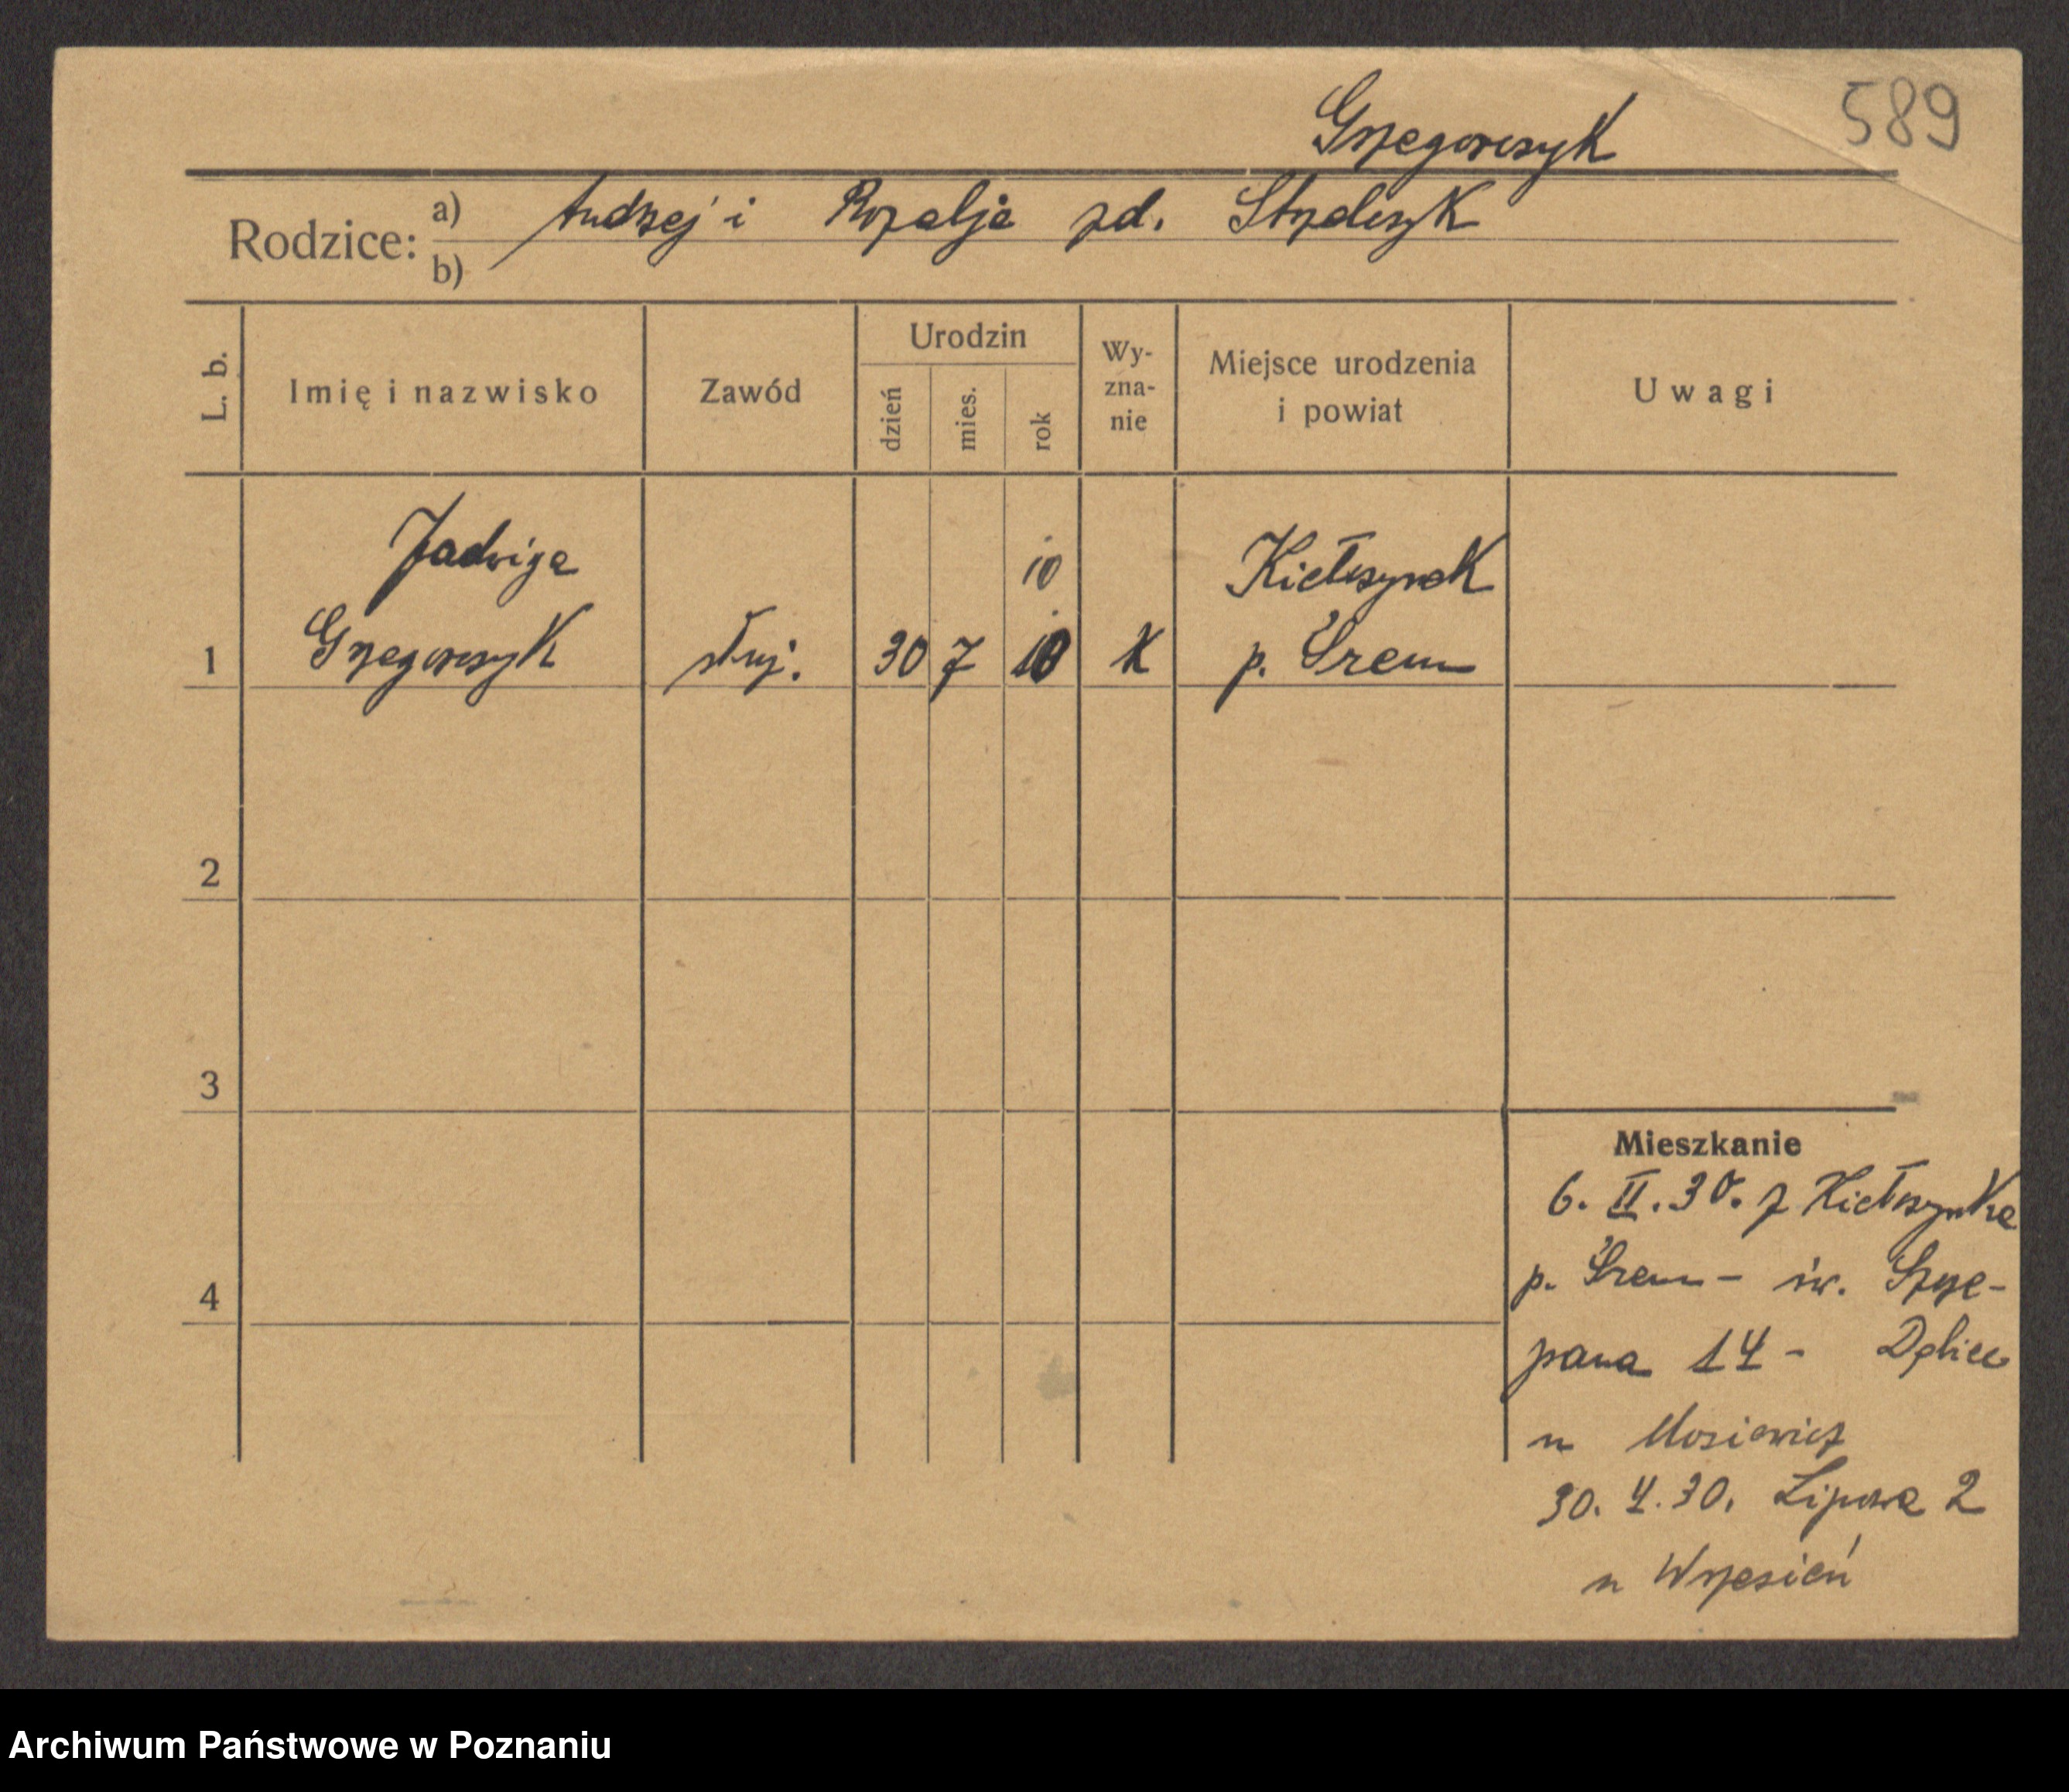 589
Grzegorczyk
Rodzice: a) Andrzej i Rozalja zd.
b)
L. b.
Imię i nazwisko
Zawód
Urodzin
dzień
mies.
rok
Wy-
zna-
nie
Miejsce urodzenia
i powiat
Uwagi
Jadwiga
10
Kiełczynek
1 Grzegorczyk służ. 30 7 10 K p. Śrem
2
3
4
Mieszkanie
6. II. 30. z Kiełczynka
p. Śrem - św. Szcze-
pana 14 - Dębiec
u Mosiewicz
30. 4. 30. Lipowa 2
u Wrzesień
Archiwum Państwowe w Poznaniu